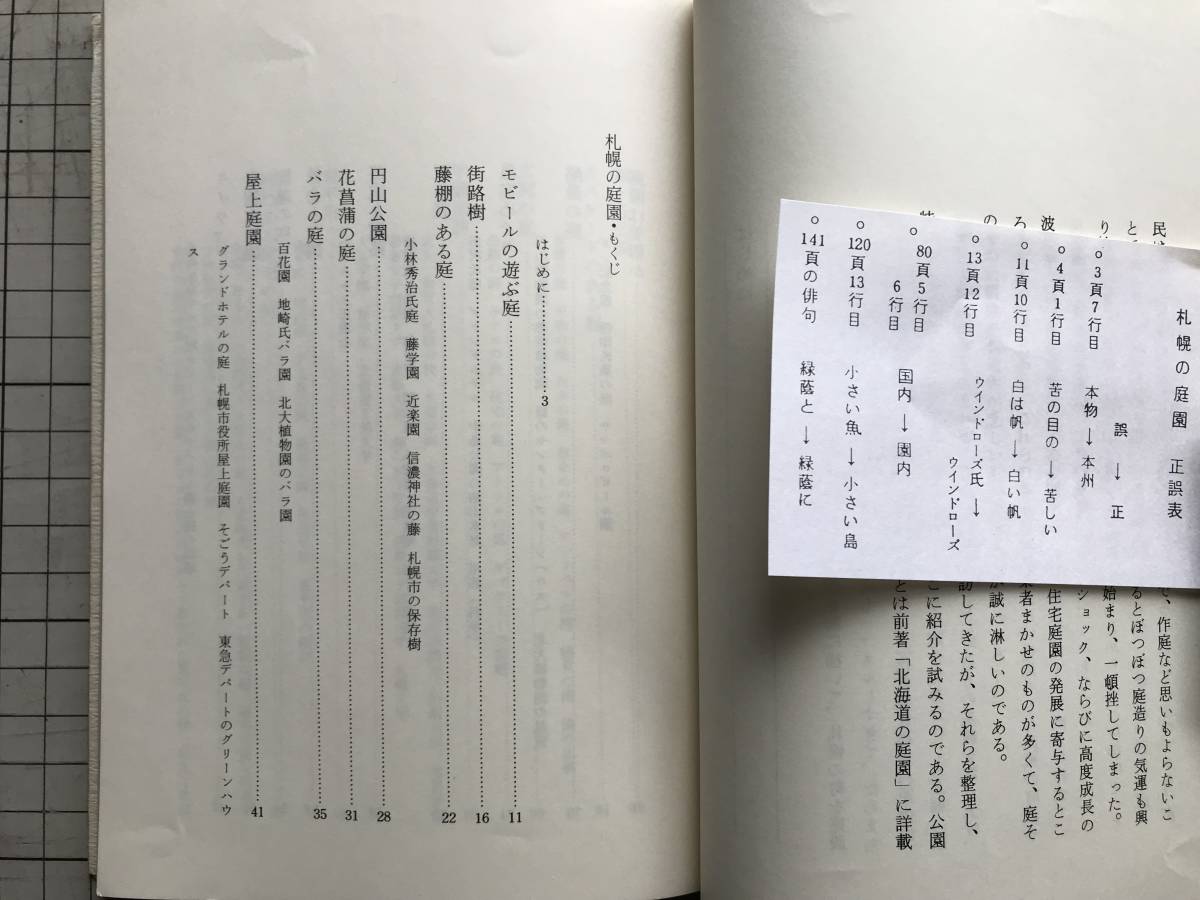 札幌の庭園 正誤表
誤→正
○3頁7行目 本物→本州
○4頁1行目 苦の目の→苦しい
○11頁10行目 白は帆→白い帆
○13頁12行目 ウインドローズ氏→
ウインドローズ
○80頁5行目
6行目 国内→園内
○120頁13行目 小さい魚→小さい島
○141頁の俳句 緑蔭と→緑蔭に
で、作庭など思いもよらないこ
るとぼつぼつ庭造りの気運も興
始まり、一頓挫してしまった。
ショック、ならびに高度成長の
住宅庭園の発展に寄与するとこ
業者まかせのものが多くて、庭そ
が誠に淋しいのである。
訪してきたが、それらを整理し、
こに紹介を試みるのである。公園
とは前著「北海道の庭園」に詳載
札幌の庭園・もくじ
はじめに……………3
モビールの遊ぶ庭……………11
街路樹……………16
藤棚のある庭……………22
小林秀治氏庭 藤学園 近楽園 信濃神社の藤 札幌市の保存樹
円山公園……………28
花菖蒲の庭……………31
バラの庭……………35
百花園 地崎氏バラ園 北大植物園のバラ園
屋上庭園……………41
グランドホテルの庭 札幌市役所屋上庭園 そごうデパート 東急デパートのグリーンハウ
ス